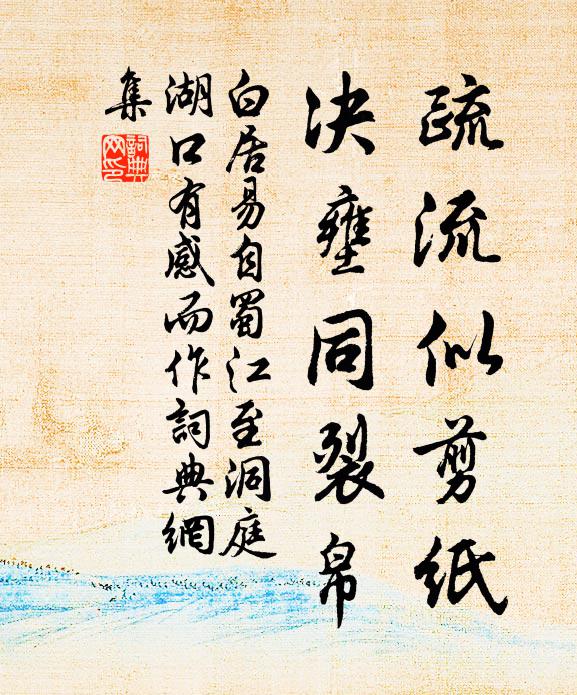 疏流似剪紙
決壅同裂帛
白居易自蜀江至洞庭
湖口有感而作詞典網
集
詞典
网印